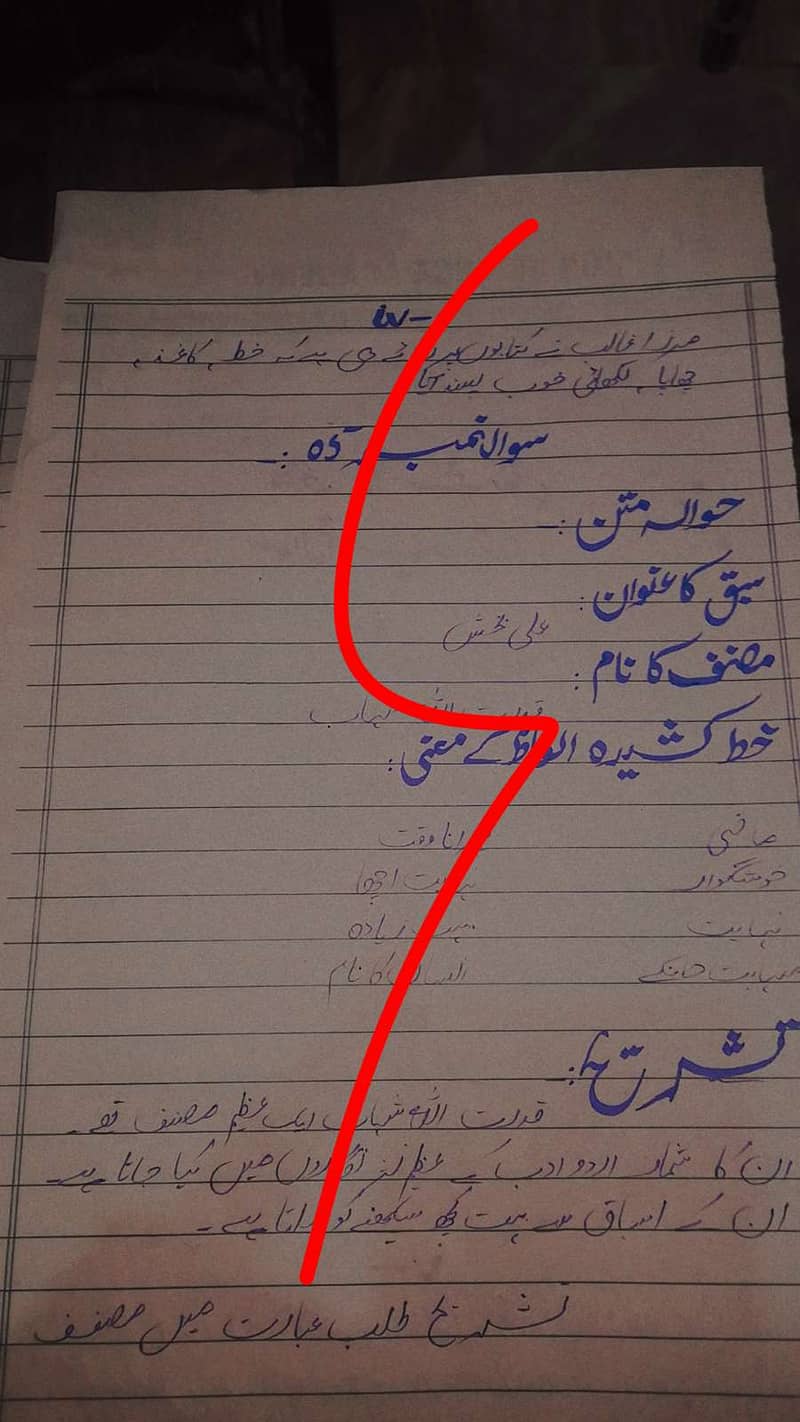 iv-
مرزا غالب نے کتابوں پر دی ہے کہ خط، کاغذ،
چھاپا، لکھائی خوب پسند آتا
سوال نمبر 05:
حوالہ متن:
سبق کا عنوان:
علی بخش
مصنف کا نام:
قدرت اللہ شہاب
خط کشیدہ الفاظ کے معنی:
وقت
خوشگوار بہت اچھا
نہایت بہت زیادہ
کا نام
تشریح:
قدرت اللہ شہاب ایک عظیم مصنف تھے۔
ان کا شمار اردو ادب کے عظیم میں کیا جاتا ہے۔
ان کے اسباق سے بہت کچھ سیکھنے کو ملتا ہے۔
تشریح طلب عبارت میں مصنف